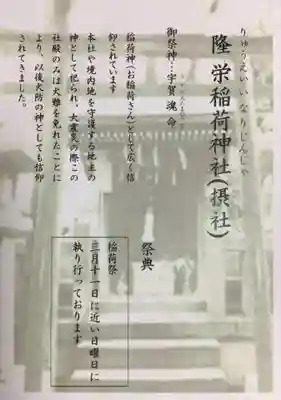 りゅうえいいなりじんじゃ
隆栄稲荷神社(摂社)
御祭神・宇賀魂命
稲荷神(お稲荷さん)として広く信
仰されています
本社や境内地を守護する地主の
神として祀られ、大震災の際この
社殿のみは火難を免れたことに
より、以後火防の神としても信仰
されてきました。
祭典
稲荷祭
三月十一日に近い日曜日に
執り行っております